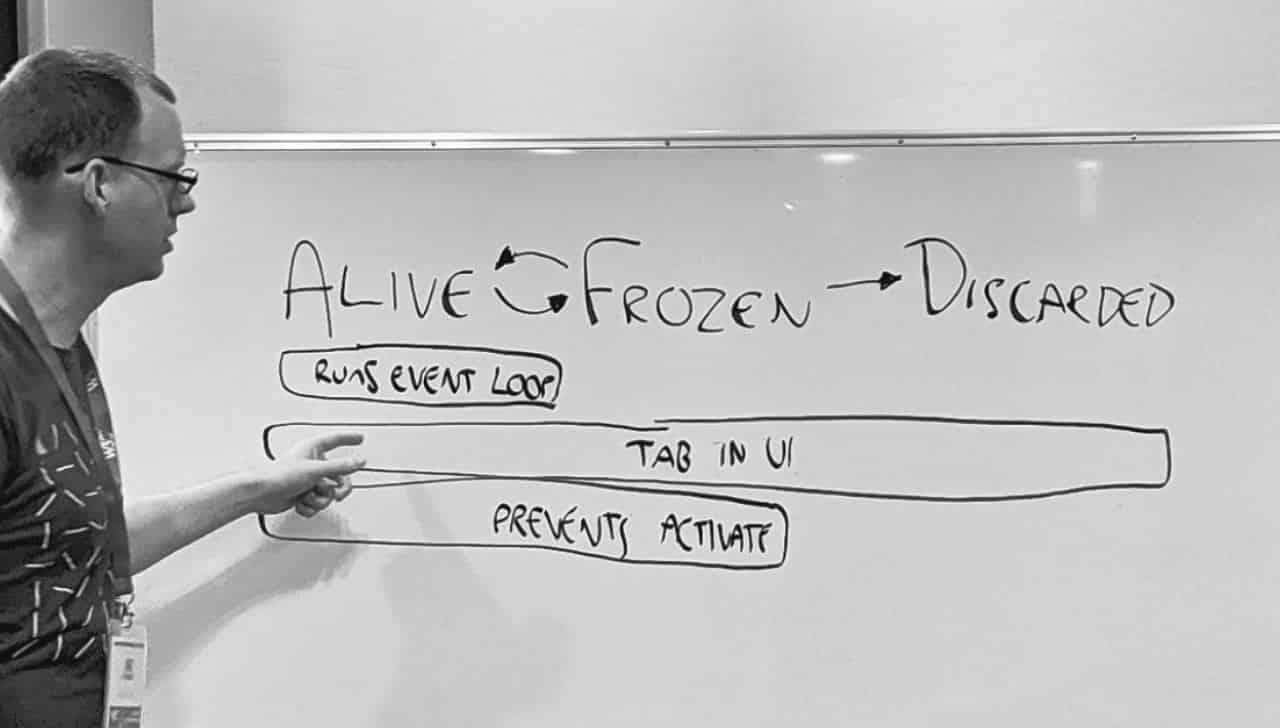 ALIVE FROZEN DISCARDED
RUNS EVENT LOOP
TAB IN UI
PREVENTS ACTIVATE